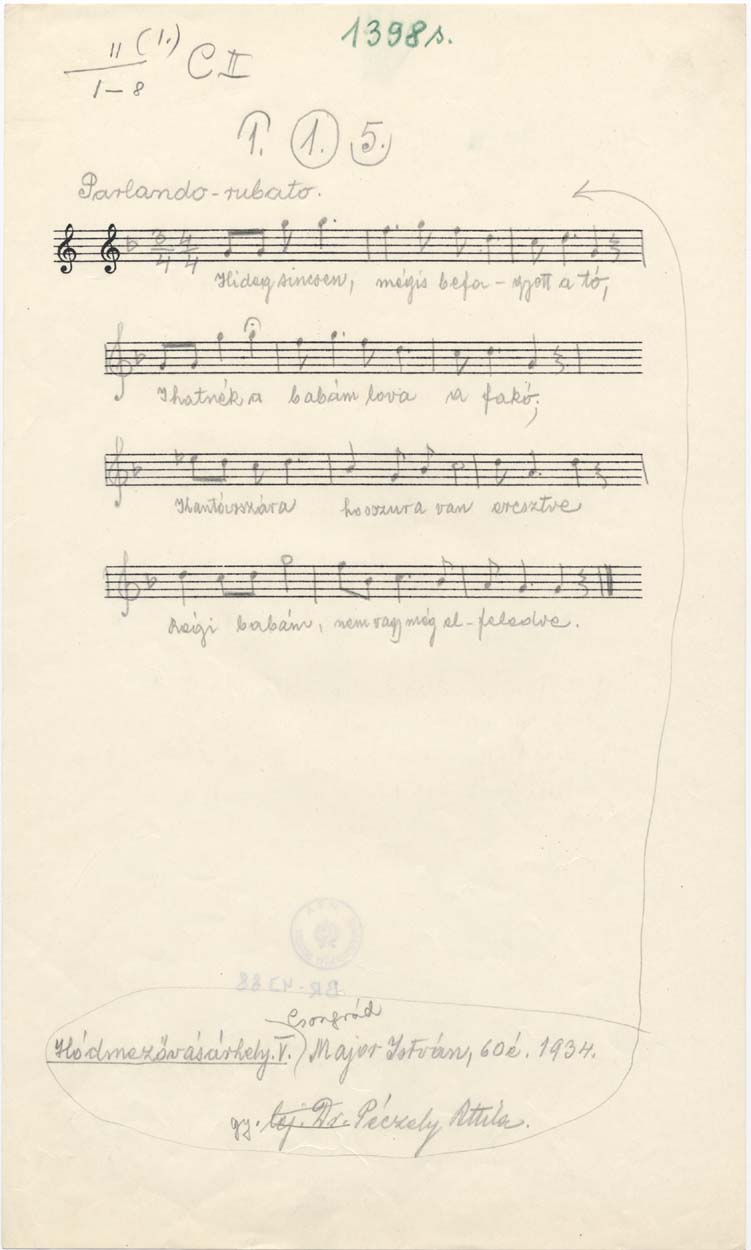 1398s.
II (1.) C II
I-8
1. 1. 5.
Parlando-rubato.
3 4
4 4
Hideg sincsen, mégis befa-gyott a tó,
Ihatnék a babám lova a fakó;
Kantárszára hosszura van eresztve
Régi babám, nem vagy még el-feledve.
BR-4388
Csongrád
Hódmezővásárhely. V.) Major István, 60é. 1934.
gy. lej. Dr. Péczely Attila.